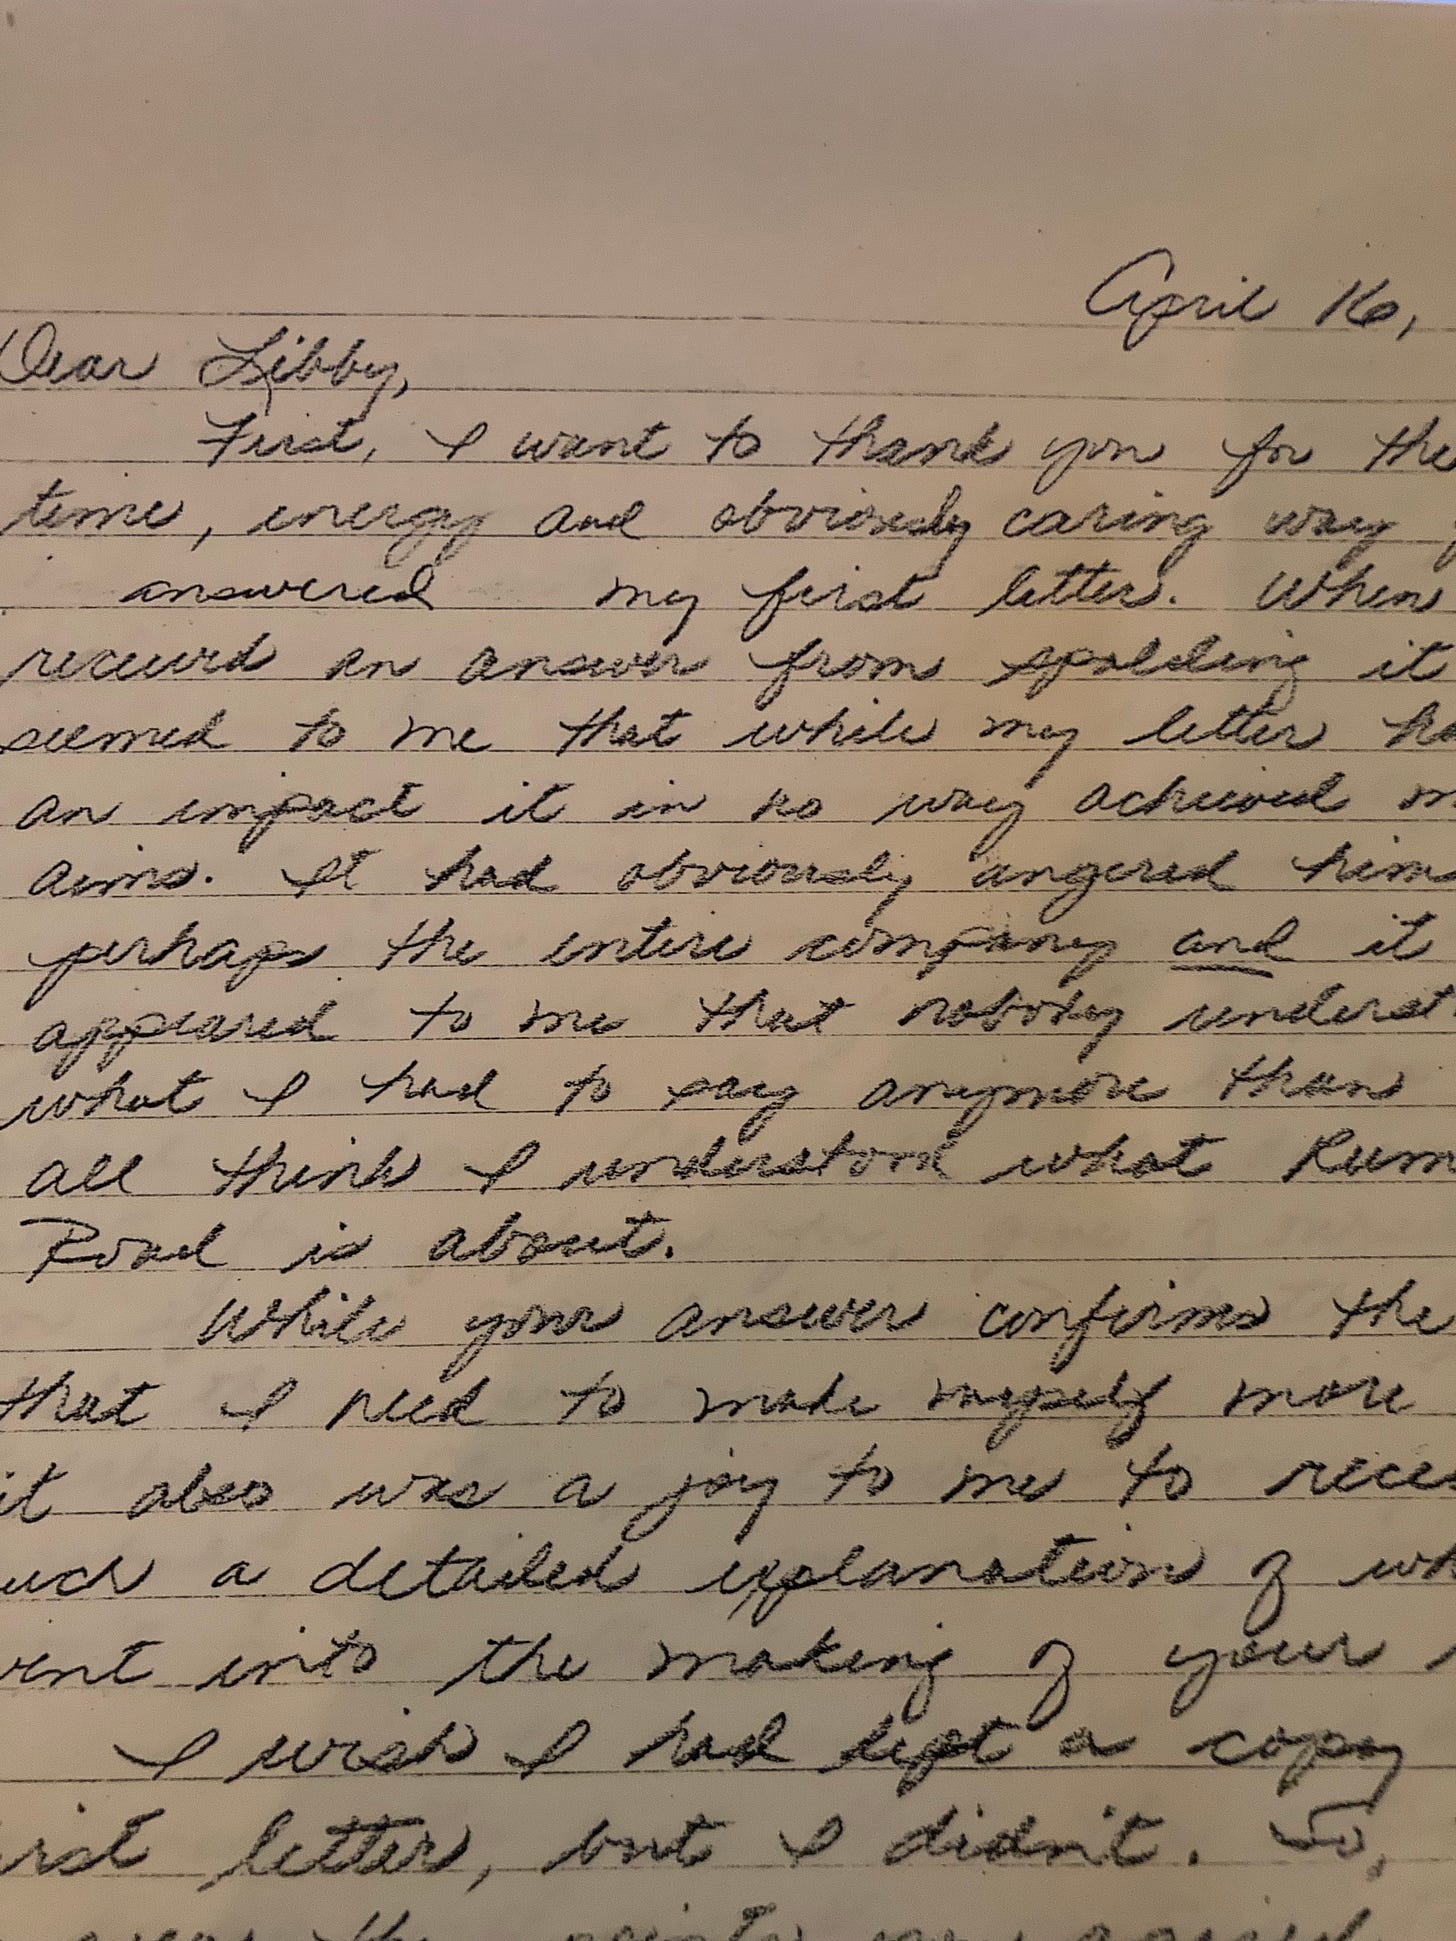 April 16,
Dear Libby,
First, I want to thank you for the
time, energy and obviously caring way
answered my first letter. When
received an answer from spalding it
seemed to me that while my letter ha
an impact it in no way achieved m
aims. It had obviously angered him
perhaps the entire company and it
appeared to me that nobody underst
what I had to say anymore than
all think I understood what Rum
Road is about.
While your answer confirms the
that I need to make myself more
it also was a joy to me to recei
uch a detailed explanation of wh
ent into the making of your
I wish I had kept a copy
irst letter, but I didn't. So,
the points you